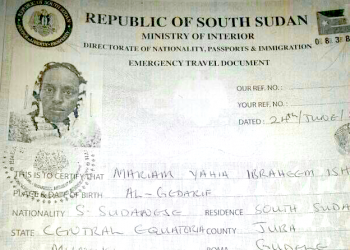 REPUBLIC OF SOUTH SUDAN
MINISTRY OF INTERIOR
DIRECTORATE OF NATIONALITY, PASSPORTS & IMMIGRATION
EMERGENCY TRAVEL DOCUMENT
OUR REF NO.:
YOUR REF NO.:
DATED: 24th/JUNE/
THIS IS TO CERTIFY THAT MARIAM YAHIA IBRAHEEM ISH
PLACE & DATE OF BIRTH AL-GEDARIF
NATIONALITY S-SUDANESE RESIDENCE SOUTH SUDA
STATE CENTRAL EQUATORIA COUNTY JUBA